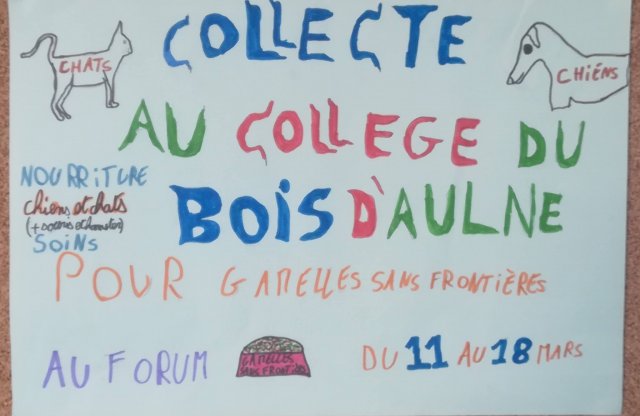 COLLECTE
CHATS
CHIENS
AU COLLEGE DU
BOIS D'AULNE
NOURRITURE
chiens et chats
SOINS
POUR GAMELLES SANS FRONTIÈRES
AU FORUM
GAMELLES
SANS FRONTIÈRES
DU 11 AU 18 MARS